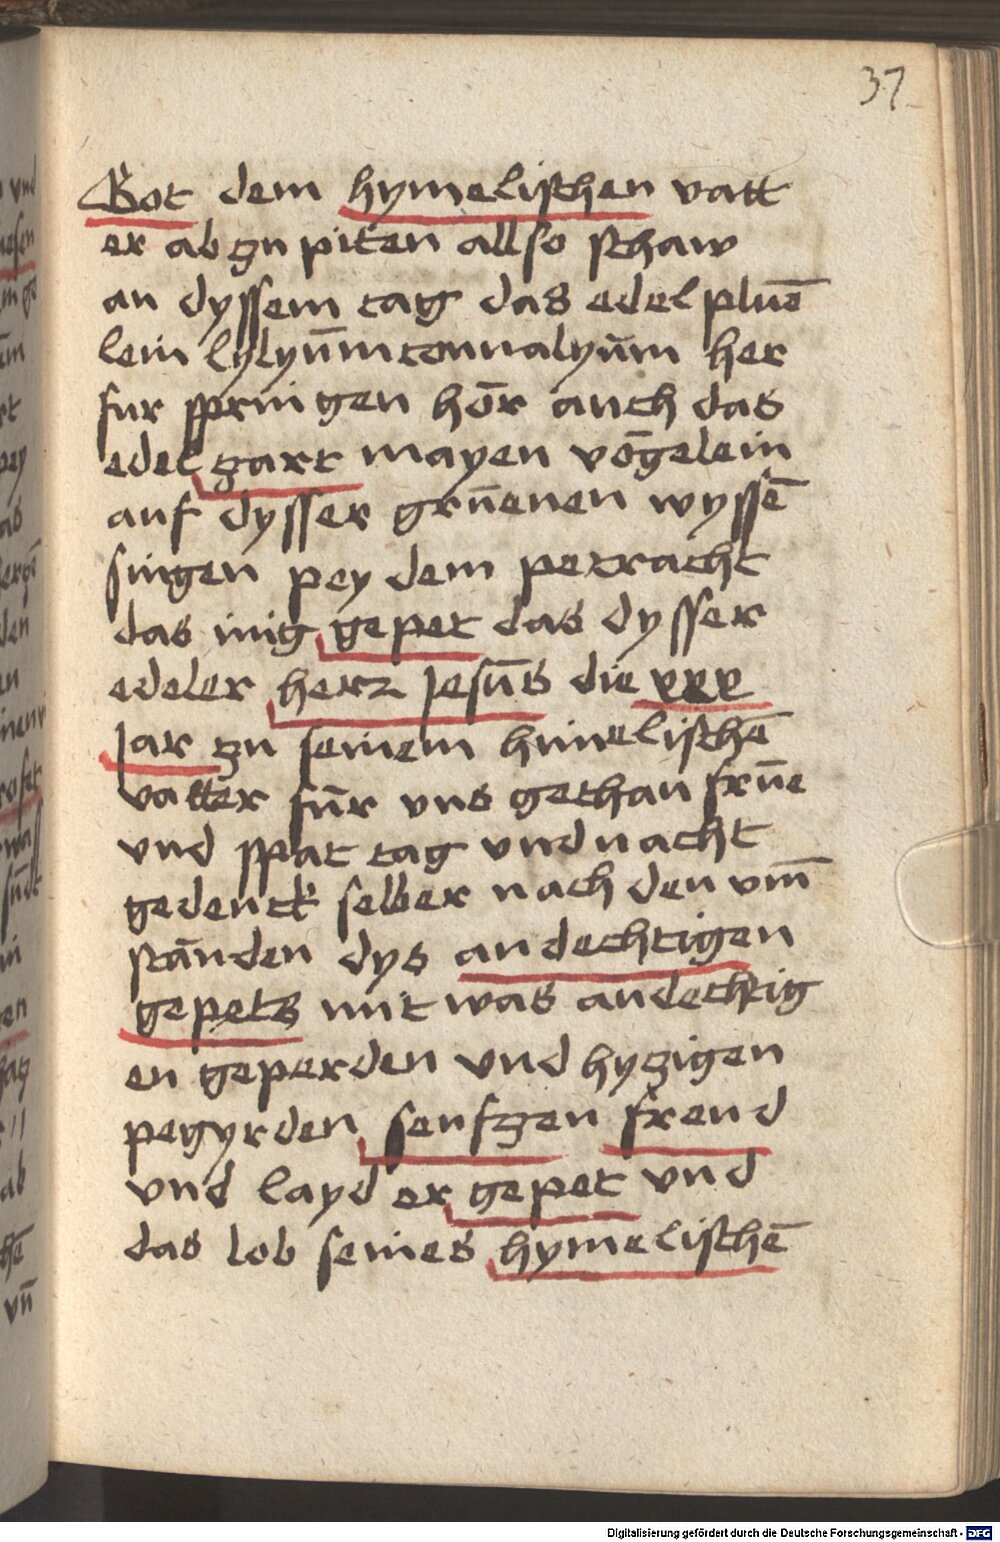 37
Got dem hymelischen vatt
er ab zu piten allso schaw
an dyssem tag das edel pluē
lein lylyūm conualyūm her
fur springen hōr auch das
edel gart mayen vōgelein
auf dysser grūenen wyssē
singen pey dem petracht
das inig gepet das dysser
edeler herz Jesūs die xxx
Jar zu seinem himelischē
vatter fūr vns gethan frūe
vnd spat tag vnd nacht
gedenck selber nach den vm̄
stānden dys andechtigen
gepets mit was andechtig
en geperden vnd hyzigen
pegyrden seufzen freud
vnd layd er gepet vnd
das lob seines hymelischē
Digitalisierung gefördert durch die Deutsche Forschungsgemeinschaft - DFG